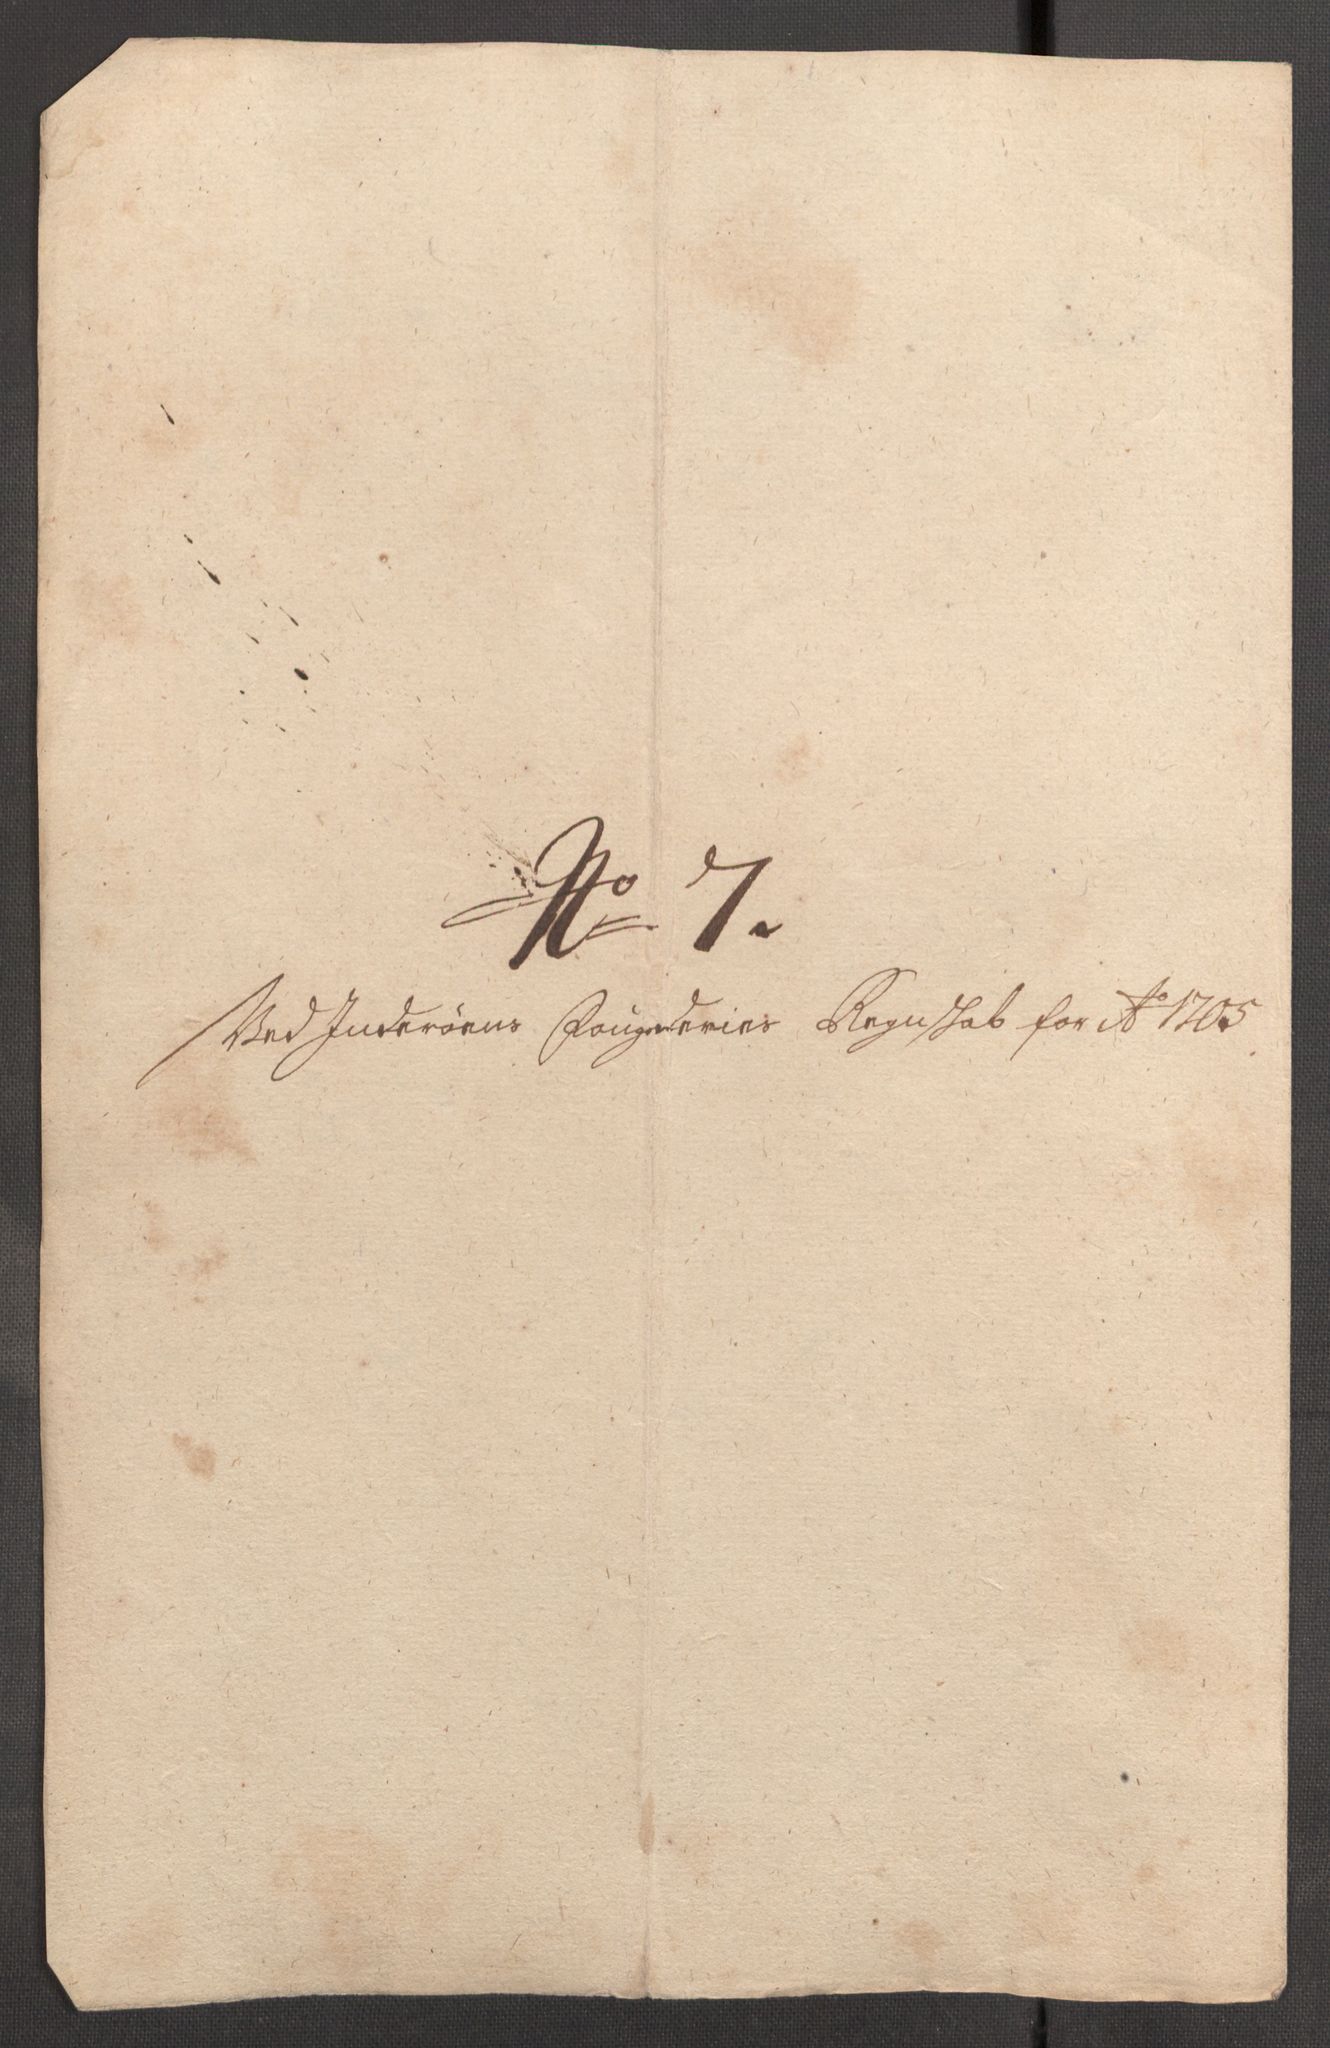 No 7.
Ved Inderöens Fougderies Regnskab for Ao 1705